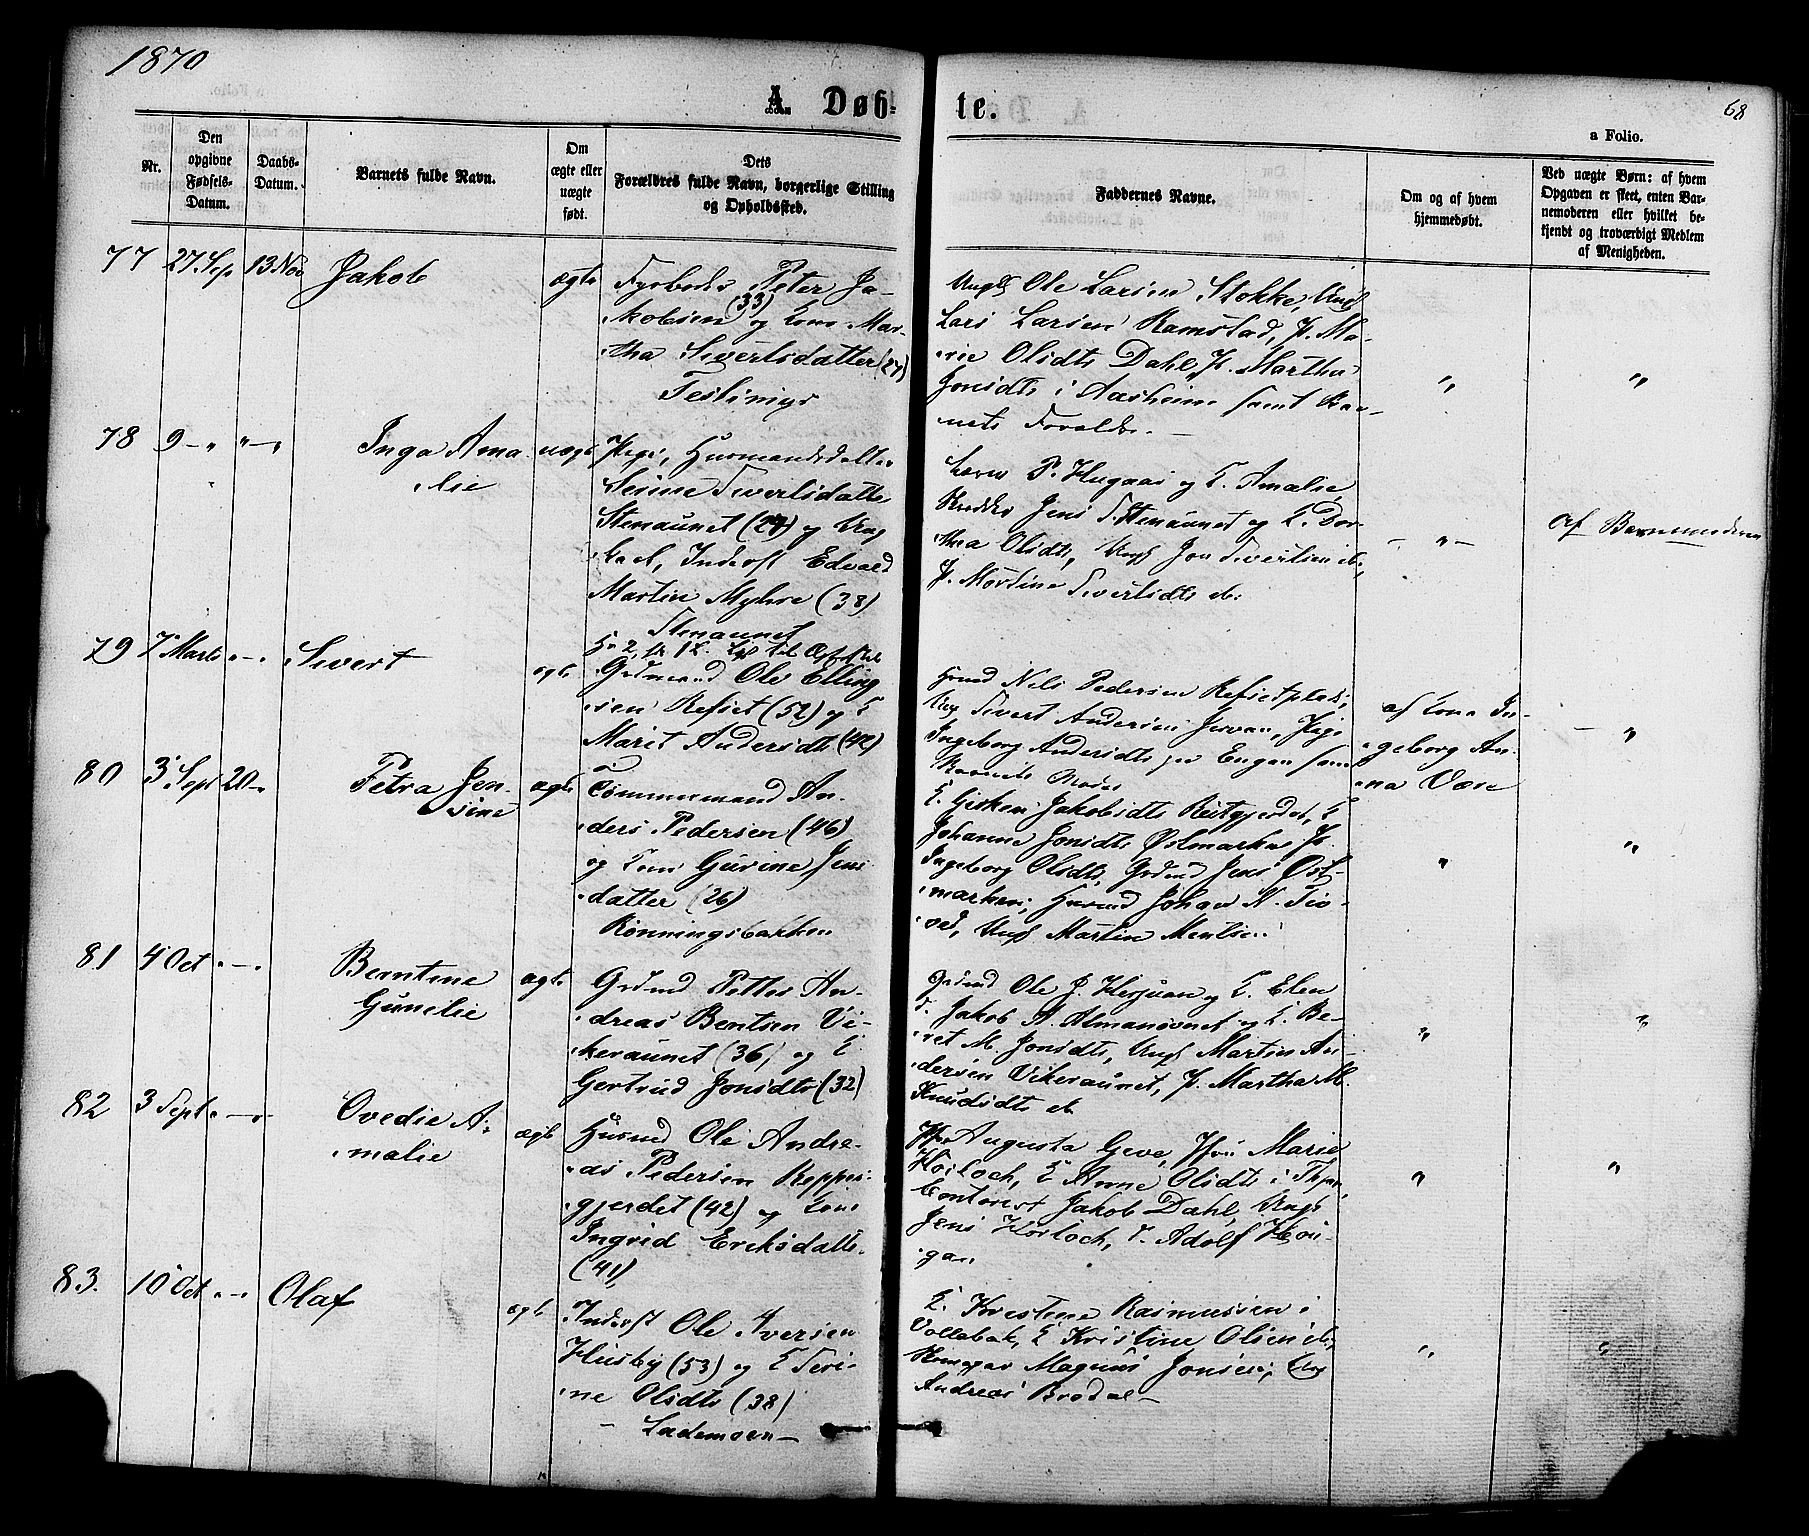 1870
A. Døb-
te.
68
a Folio.
Nr.
Den
opgivne
Fødsels-
Datum.
Daabs-
Datum.
Barnets fulde Navn.
Om
ægte eller
uægte
født.
Dets
Forældres fulde Navn, borgerlige Stilling
og Opholdssted.
Faddernes Navne.
Om og af hvem
hjemmedøbt.
Ved uægte Børn: af hvem
Opgaven er skeet, enten Bar-
nemoderen eller hvilket be-
kjendt og troværdigt Medlem
af Menigheden.
77 27. Sep 13 Nov Jakob ægte
Peter Ja-
kobsen (33) og Kone Mar-
tha Sivertsdatter (27)
Feslimyr
Ungk Ole Larsen Stokke, Ung
Lars Larsen Ramstad, P. Ma-
rie Olsdtr Dahl, P. Martha
Jonsdtr i Aasheim samt Bar-
nets Forældre. —
" "
78 9 – " " – " Inga Ama-
lie
uægte
Pige, Husmandsdatter
Sivertsdatter
Stenaunet (27) og Ung
karl, Inderst Edvald
Martin Myhre (38)
Stenaunet
P. Hugaas og K. Amalie
Jens S. Stenaunet og K. Dor-
thea Olsdtr, Ungk Jon Sivertsen ib.,
P. Martine Sivertsdtr ib.
– " –
Af Barnemoderen
79 7 Marts " – " Sivert ægte
Grdmand Ole Elling
sen Refset (52) og K
Marit Andersdt (42)
Nils Pedersen Refsetplads,
Ung Sivert Andersen Jervan, Pige
Ingeborg Andersdtr paa Engan samt
Barnets Moder
af Kona In-
geborg An-
na Være
– "
80 3 Sept 20 – " Petra Jen-
sine
ægte
Tømmermand An-
ders Pedersen (46)
og Kone Gurine Jens
datter (26)
Rønningsbakken
K. Gisken Jakobsdtr Reitgjerdet, K
Johanne Jonsdtr Østmarken P.
Ingeborg Olsdtr, Grdmd Jens Øst-
marken, Husmd Johan N. Tes-
ved, Ungk Martin Mentsen
" "
81 4 Oct " – " Berntine
Gunelie
ægte
Grdmd Petter An-
dreas Bentsen Vi-
keraunet (36) og K
Gertrud Jonsdtr (32)
Grdmd Ole J. Hesjuan og K. Elen
d. Jakob A. Almanovnet og K. Be-
ret M. Jonsdtr, Ungk Martin An-
dersen Vikeraunet, P. Martha M.
Knudsdtr ib
" "
82 3 Sept " – " Ovedie A-
malie
ægte
Husmd Ole Andre-
as Pedersen Reppes-
gjerdet (42) og Kone
Ingrid Eriksdatter
(41)
Jfr Augusta Geve, Jfr Marie
Horloch, K Anne Olsdtr i Thjem,
Contorist Jakob Dahl, Ungk
Jens Horloch, Adolf Hou-
gan.
" "
83. 10 Oct " – " Olaf ægte
Inderst Ole Iversen
Husby (53) og K Seri-
ne Olsdtr (38)
– Lademoen –
K. Kristine Rasmussen i
Vollabak, K Kristine Olsen ib,
Magnus Jonsen, Ung
Andreas Brødal –
" "